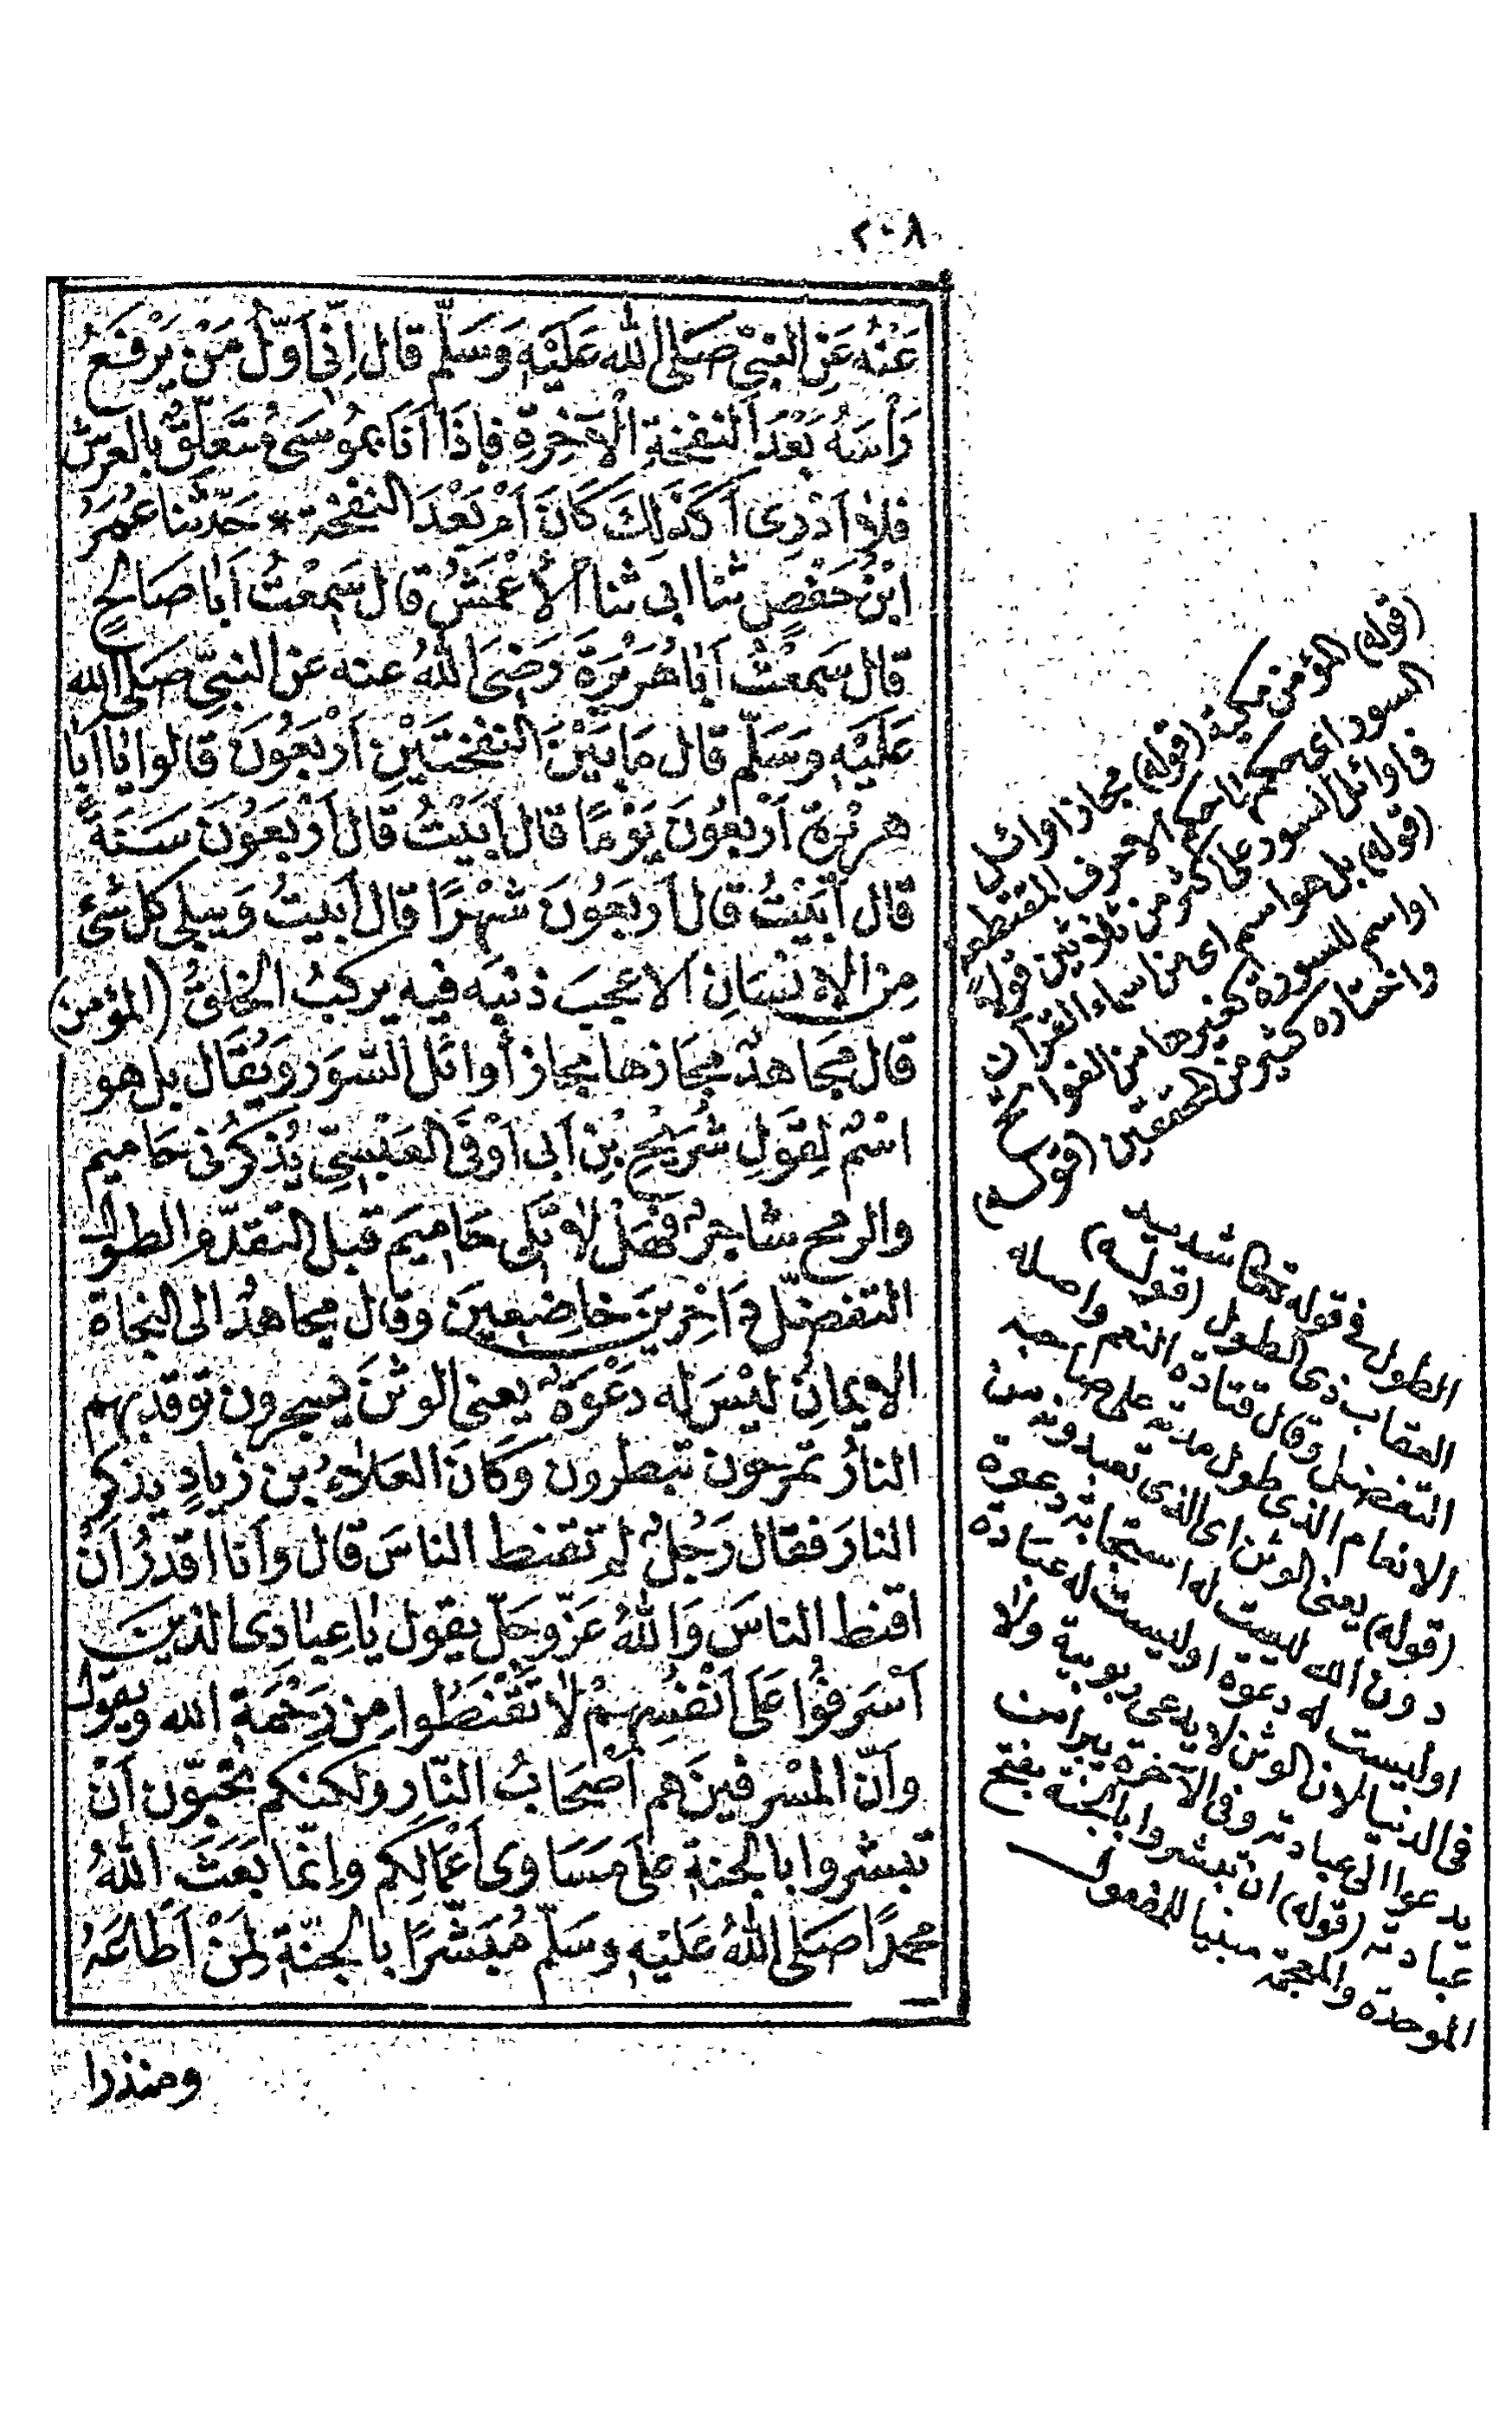 ٢٠٨
عَنْهُ عَنِ النبيّ صَلَى الله عَلَيْهِ وَسَلّم قال اِنّى اَوّلُ مَنْ يَرْفَعُ
رَأْسَهُ بَعْدَ النفخةِ الْآخِرَةِ فاِذَا اَنَا بمُوسَى مُتَعَلِّقٌ بالعرش
فلا اَدْرِى اَ كَذٰلِكَ كَانَ اَمْ بَعْدَ النفخة * حَدّثنا عُمَرُ
ابْنُ حَفْصٍ ثنا ابى ثنا الأَعْمَشُ قال سَمِعْتُ اَبَا صَالحٍ
قال سَمِعْتُ اَبَا هُرَيْرَةَ رَضِىَ اللهُ عنه عن النبيّ صَلى الله
عَلَيْهِ وسَلّم قال مَا بَيْنَ النفختَيْنِ اَرْبَعُونَ قالوا يٰا اَبَا
هريْرَةَ اَرْبَعُونَ يَوْمًا قال اَبَيْتُ قال اَرْبَعُونَ سَنَةً
قال اَبَيْتُ قال اَرْبَعُونَ شَهْرًا قال اَبيتُ وَيبلى كل شئ
مِنَ الاِنْسَانِ الا عجبَ ذنبِه فيه يركبُ الخلقُ (المؤمن)
قال مجَاهدٌ مجَازها مجاز أوائل السّوَر ويُقَال بل هو
اسْمٌ لِقَولِ شُرَيْحِ بْنِ اَبى اَوْفَى العَبْسىّ يُذكّرُنى حَاميم
والرمح شاجرٌ فهَلّا تَلَى حَاميمَ قبل التقدّم الطول
التفضّل دَاخِرِينَ خاضِعِينَ وقال مجاهدٌ الى النجاة
الايمانُ ليْسَ له دَعْوَةٌ يعنى الوثنَ يسجرون توقد بهم
النارُ تمرَحون تبطرون وَكَانَ العَلَاءُ بن زيادٍ يذكر
النارَ فقال رَجُلٌ لم تقنط الناسَ قال وَاَنا اَقدرُ اَنْ
اقنط الناسَ وَاللهُ عَزّ وجَلّ يقول يٰا عِبٰادِىَ الذينَ
اَسْرَفُوا عَلَى اَنْفُسِهِمْ لا تَقْنَطُوا مِن رَحْمَةِ الله ويقول
وَاَنّ المسْرفينَ هم اَصْحَابُ النّارِ ولكنكم تحبّون اَنْ
تبشروا بالجنةِ على مَسَاوى اَعْمَالِكم وانّما بَعَثَ اللهُ
محمدًا صَلى اللهُ عَلَيْهِ وسَلّم مُبَشّرًا بالجنّةِ لِمَنْ اَطَاعَهُ
ومنذرا
(قوله) المؤمن مكية (قوله) مجاز اوائل
السور اى حكمها حكم الاحرف المقتطعة
فى اوائل السور على اكثر من ثلاثين قولا
(قوله) بل هو اسم اى من اسماء القرآن
او اسم للسورة كغيرها من الفواتح
واختاره كثير من المحققين (قوله)
الطول فى قوله تعالى شديد
العقاب ذى الطول (قوله)
التفضل وقال قتادة النعم واصله
الانعام الذى طول مدته على صاحبه
(قوله) يعنى الوثن اى الذى تعبدونه من
دون الله ليست له استجابة دعوة
او ليست له دعوة او ليست له عبادة
فى الدنيا لان الوثن لا يدعى ربوبية ولا
يدعوا الى عبادته وفى الآخرة يبرأ من
عبادته (قوله) ان تبشروا بالجنة بفتح
الموحدة والمعجمة مبنيا للمفعول